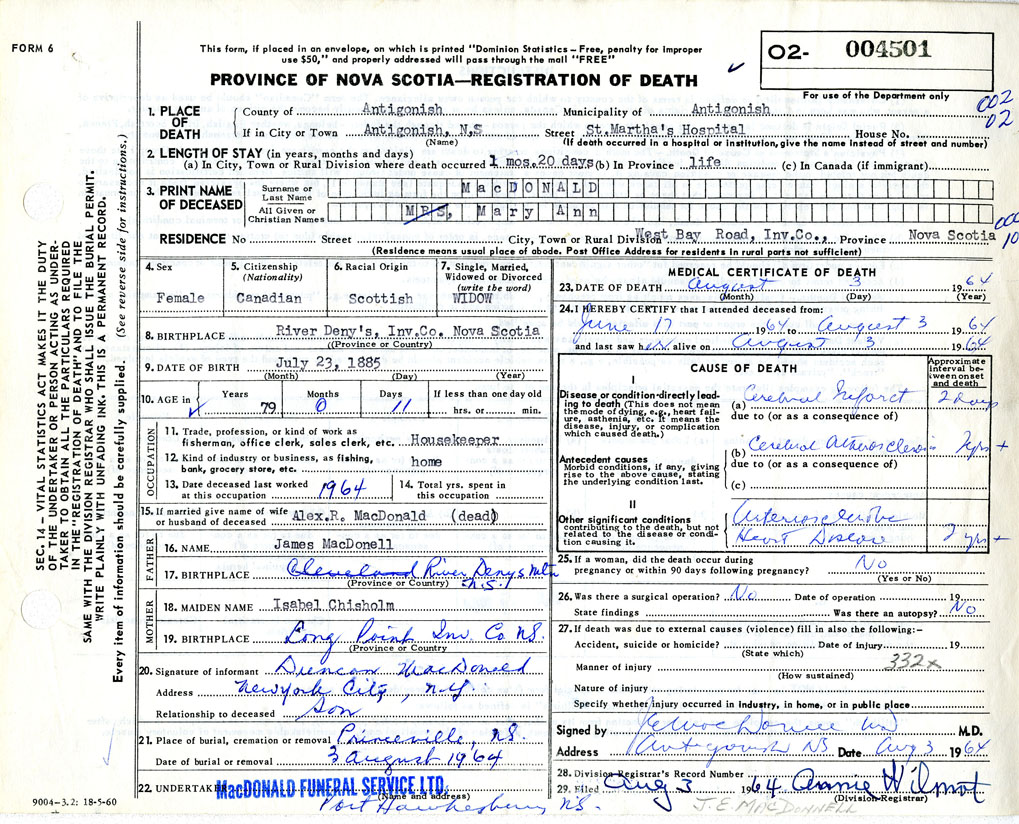 FORM 6
This form, if placed in an envelope, on which is printed "Dominion Statistics – Free, penalty for improper
use $50," and properly addressed will pass through the mail "FREE"
PROVINCE OF NOVA SCOTIA—REGISTRATION OF DEATH
02- 004501
For use of the Department only
002
02
SEC. 14 – VITAL STATISTICS ACT MAKES IT THE DUTY
OF THE UNDERTAKER OR PERSON ACTING AS UNDER-
TAKER TO OBTAIN ALL THE PARTICULARS REQUIRED
IN THE "REGISTRATION OF DEATH" AND TO FILE THE
SAME WITH THE DIVISION REGISTRAR WHO SHALL ISSUE THE BURIAL PERMIT.
WRITE PLAINLY WITH UNFADING INK. THIS IS A PERMANENT RECORD.
Every item of information should be carefully supplied. (See reverse side for instructions.)
1. PLACE OF DEATH
County of Antigonish Municipality of Antigonish
If in City or Town Antigonish, N.S Street St.Martha's Hospital House No.
(Name) (If death occurred in a hospital or institution, give the name instead of street and number)
2. LENGTH OF STAY (in years, months and days)
(a) In City, Town or Rural Division where death occurred 1 mos.20 days (b) In Province life (c) In Canada (if immigrant)
3. PRINT NAME OF DECEASED
Surname or Last Name MacDONALD
All Given or Christian Names MRS, Mary Ann
RESIDENCE No Street City, Town or Rural Division West Bay Road, Inv.Co., Province Nova Scotia
10
(Residence means usual place of abode. Post Office Address for residents in rural parts not sufficient)
4. Sex
Female
5. Citizenship
(Nationality)
Canadian
6. Racial Origin
Scottish
7. Single, Married,
Widowed or Divorced
(write the word)
WIDOW
8. BIRTHPLACE River Deny's, Inv.Co. Nova Scotia
(Province or Country)
9. DATE OF BIRTH July 23, 1885
(Month) (Day) (Year)
10. AGE in Years Months Days If less than one day old
79 0 11 hrs. or min.
OCCUPATION
11. Trade, profession, or kind of work as
fisherman, office clerk, sales clerk, etc. Housekeeper
12. Kind of industry or business, as fishing,
bank, grocery store, etc. home
13. Date deceased last worked
at this occupation 1964
14. Total yrs. spent in
this occupation
15. If married give name of wife
or husband of deceased Alex.R. MacDonald (dead)
FATHER
16. NAME James MacDonell
17. BIRTHPLACE Cleveland River Denys Mtn
N.S.
(Province or Country)
MOTHER
18. MAIDEN NAME Isabel Chisholm
19. BIRTHPLACE Long Point Inv. Co NS.
(Province or Country
20. Signature of informant Duncan MacDonald
Address New york City, N.Y.
Relationship to deceased Son
21. Place of burial, cremation or removal Princeville, NS.
Date of burial or removal 3 August 1964
22. UNDERTAKER MacDONALD FUNERAL SERVICE LTD.
(Name and address)
Port Hawkesbury NS.
9004-3.2: 18-5-60
MEDICAL CERTIFICATE OF DEATH
23. DATE OF DEATH August 3 1964
(Month) (Day) (Year)
24. I HEREBY CERTIFY that I attended deceased from:
June 17 1964 to August 3 1964
and last saw her alive on August 3 1964
CAUSE OF DEATH
Approximate interval between onset and death
I
Disease or condition directly lead-
ing to death (This does not mean
the mode of dying, e.g., heart fail-
ure, asthenia, etc. It means the
disease, injury, or complication
which caused death.)
(a) Cerebral Infarct 2 days
due to (or as a consequence of)
Antecedent causes
Morbid conditions, if any, giving
rise to the above cause, stating
the underlying condition last.
(b) Cerebral Atherosclerosis 2 yrs +
due to (or as a consequence of)
(c)
II
Other significant conditions
contributing to the death, but not
related to the disease or condi-
tion causing it.
Arteriosclerotic
Heart Disease 2 yrs +
25. If a woman, did the death occur during
pregnancy or within 90 days following pregnancy? No
(Yes or No)
26. Was there a surgical operation? No Date of operation 19
State findings Was there an autopsy? No
27. If death was due to external causes (violence) fill in also the following:–
Accident, suicide or homicide? Date of injury 19
(State which)
332x
Manner of injury
(How sustained)
Nature of injury
Specify whether injury occurred in industry, in home, or in public place
Signed by M.D.
Address Antigonish NS Date Aug 3 1964
28. Division Registrar's Record Number
29. Filed Aug 3 1964 Annie Wilmot
(Division Registrar)
J.E. MACDONNELL